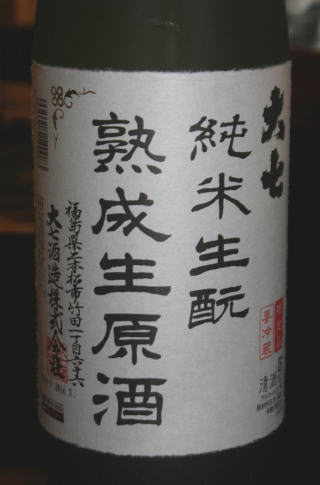 大七
純米生酛
熟成生原酒
福島県二本松市竹田一丁目六十六
大七酒造株式会社
要冷蔵
清酒
2014.1.